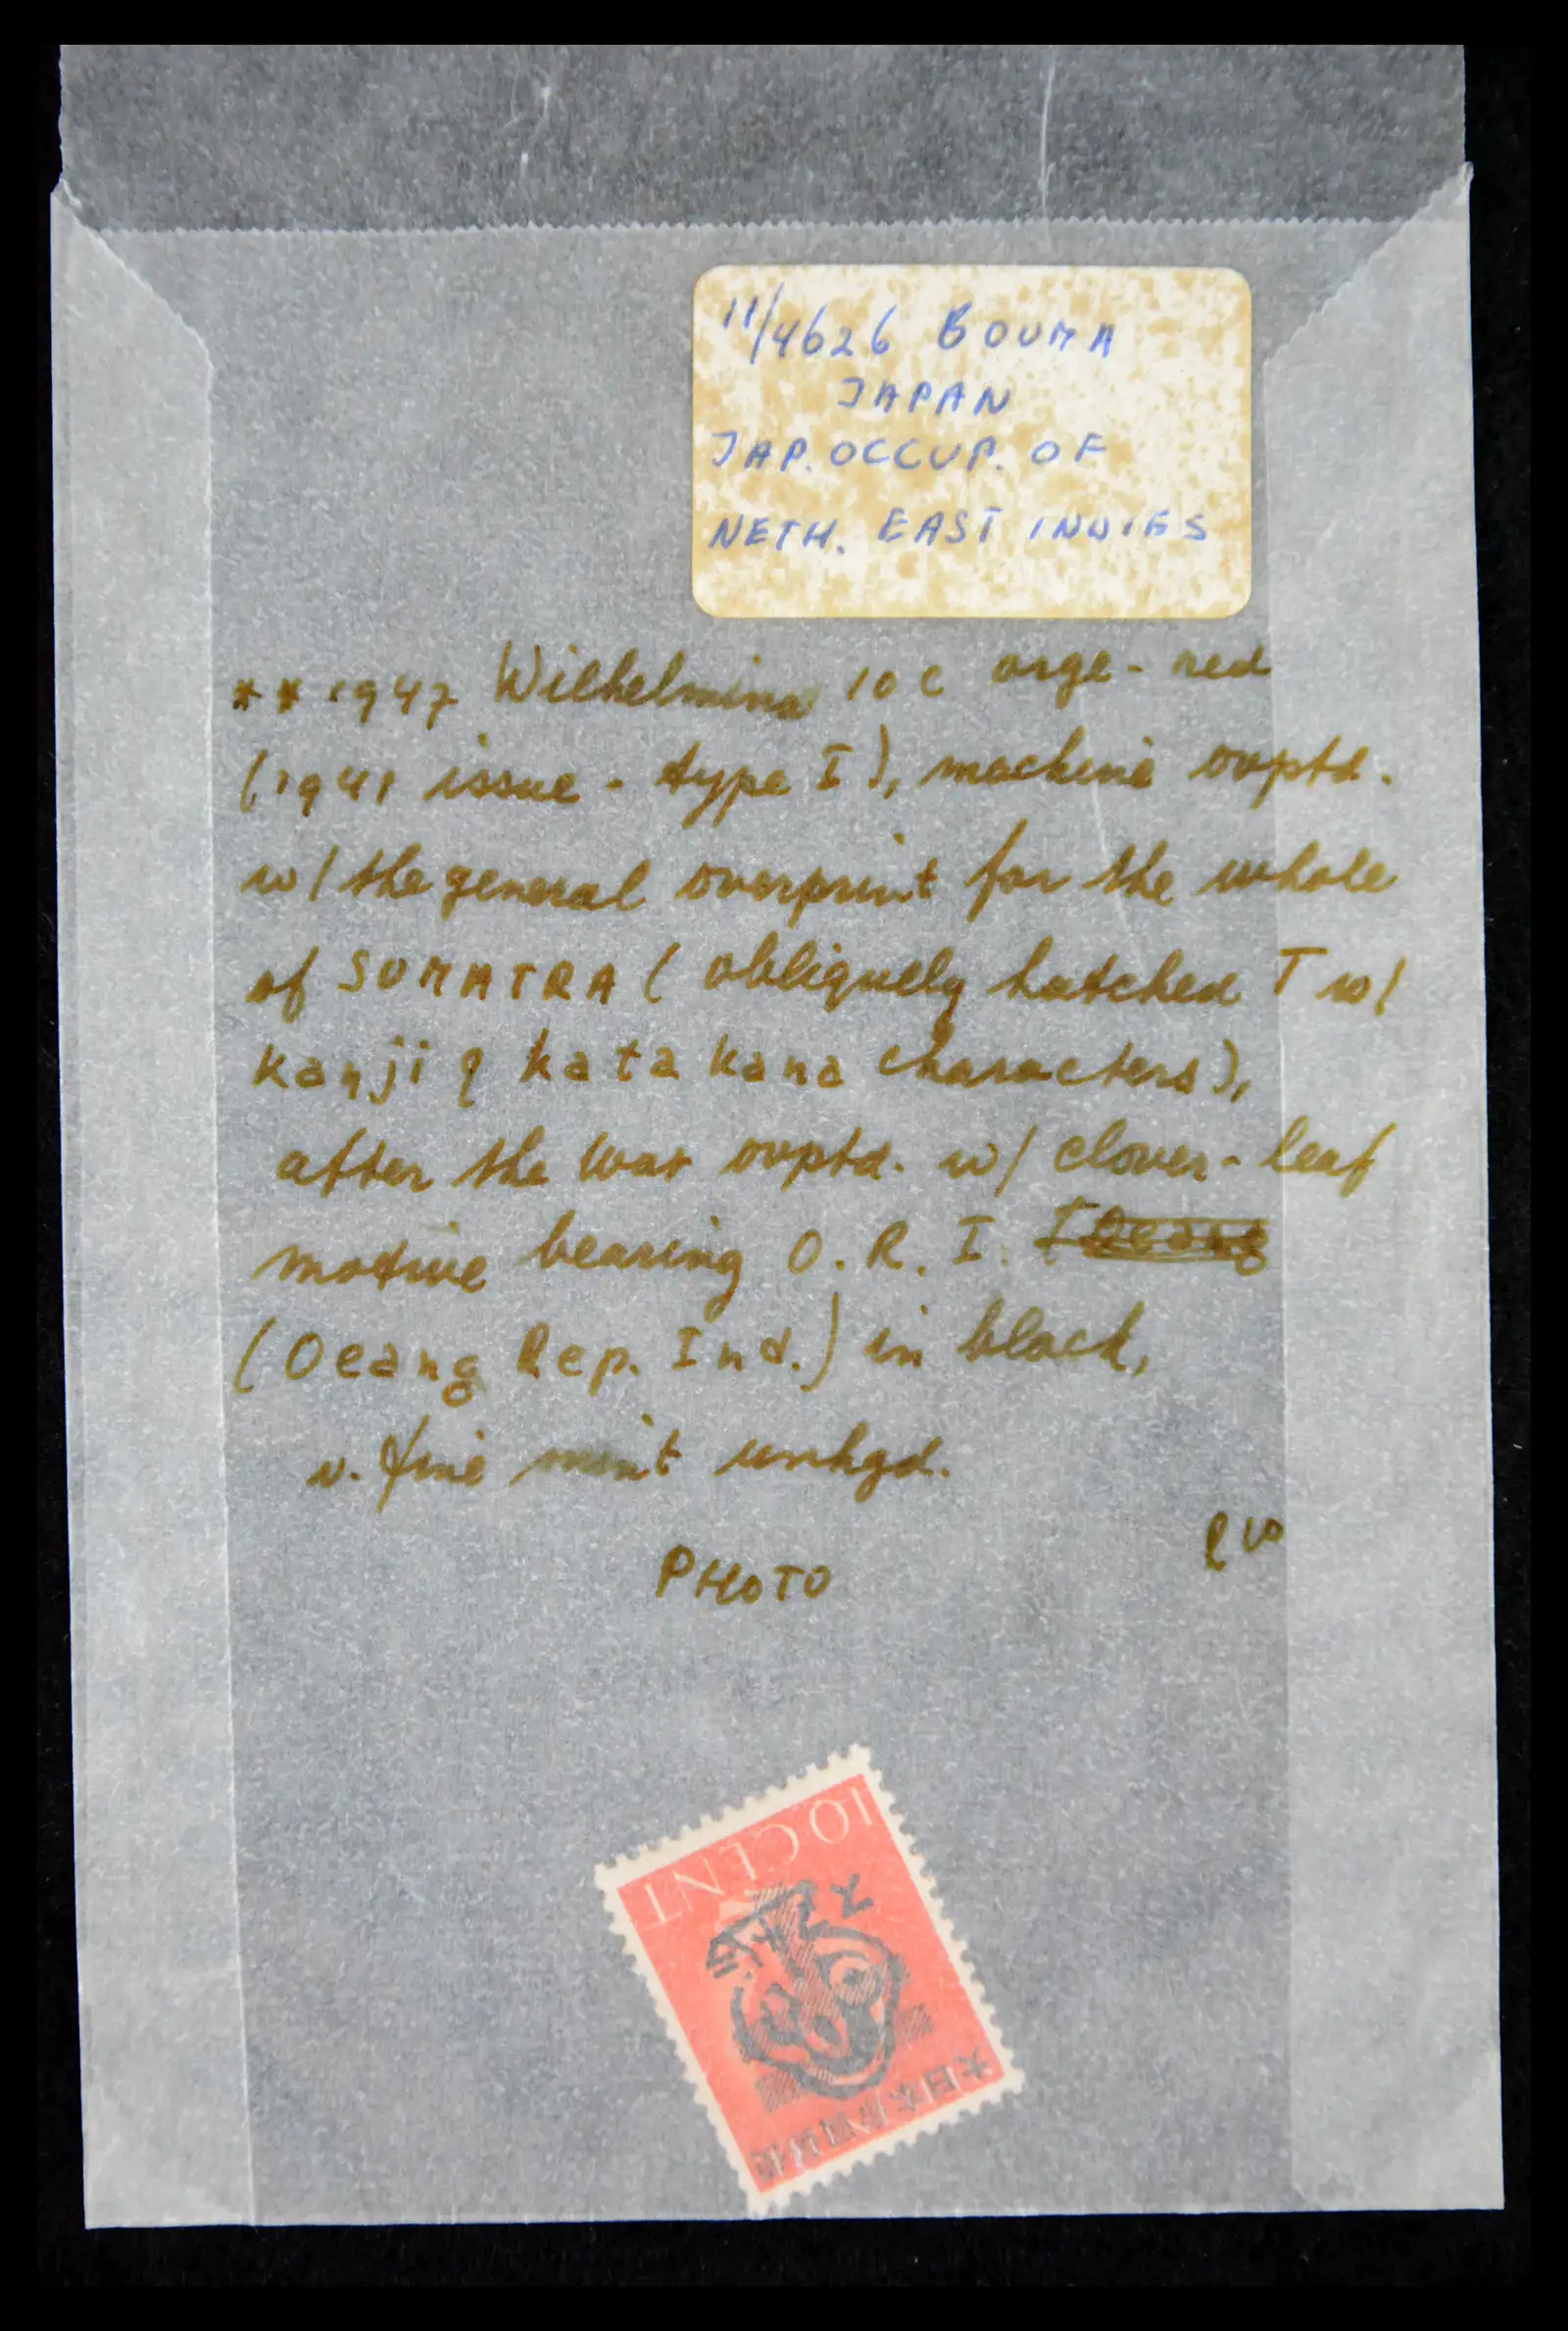 11/4626 BOUMA
JAPAN
JAP. OCCUP. OF
NETH. EAST INDIES
** 1947 Wilhelmina 10 c orge-red
(1941 issue - type I), machine ovptd.
w/ the general overprint for the whole
of SUMATRA ( obliquely hatched T w/
kanji & katakana characters),
after the war ovptd. w/ clover-leaf
motive bearing O.R.I.
(Oeang Rep. Ind.) in black,
v. fine mint unhgd.
PHOTO
10 CENT
大日本帝国郵便